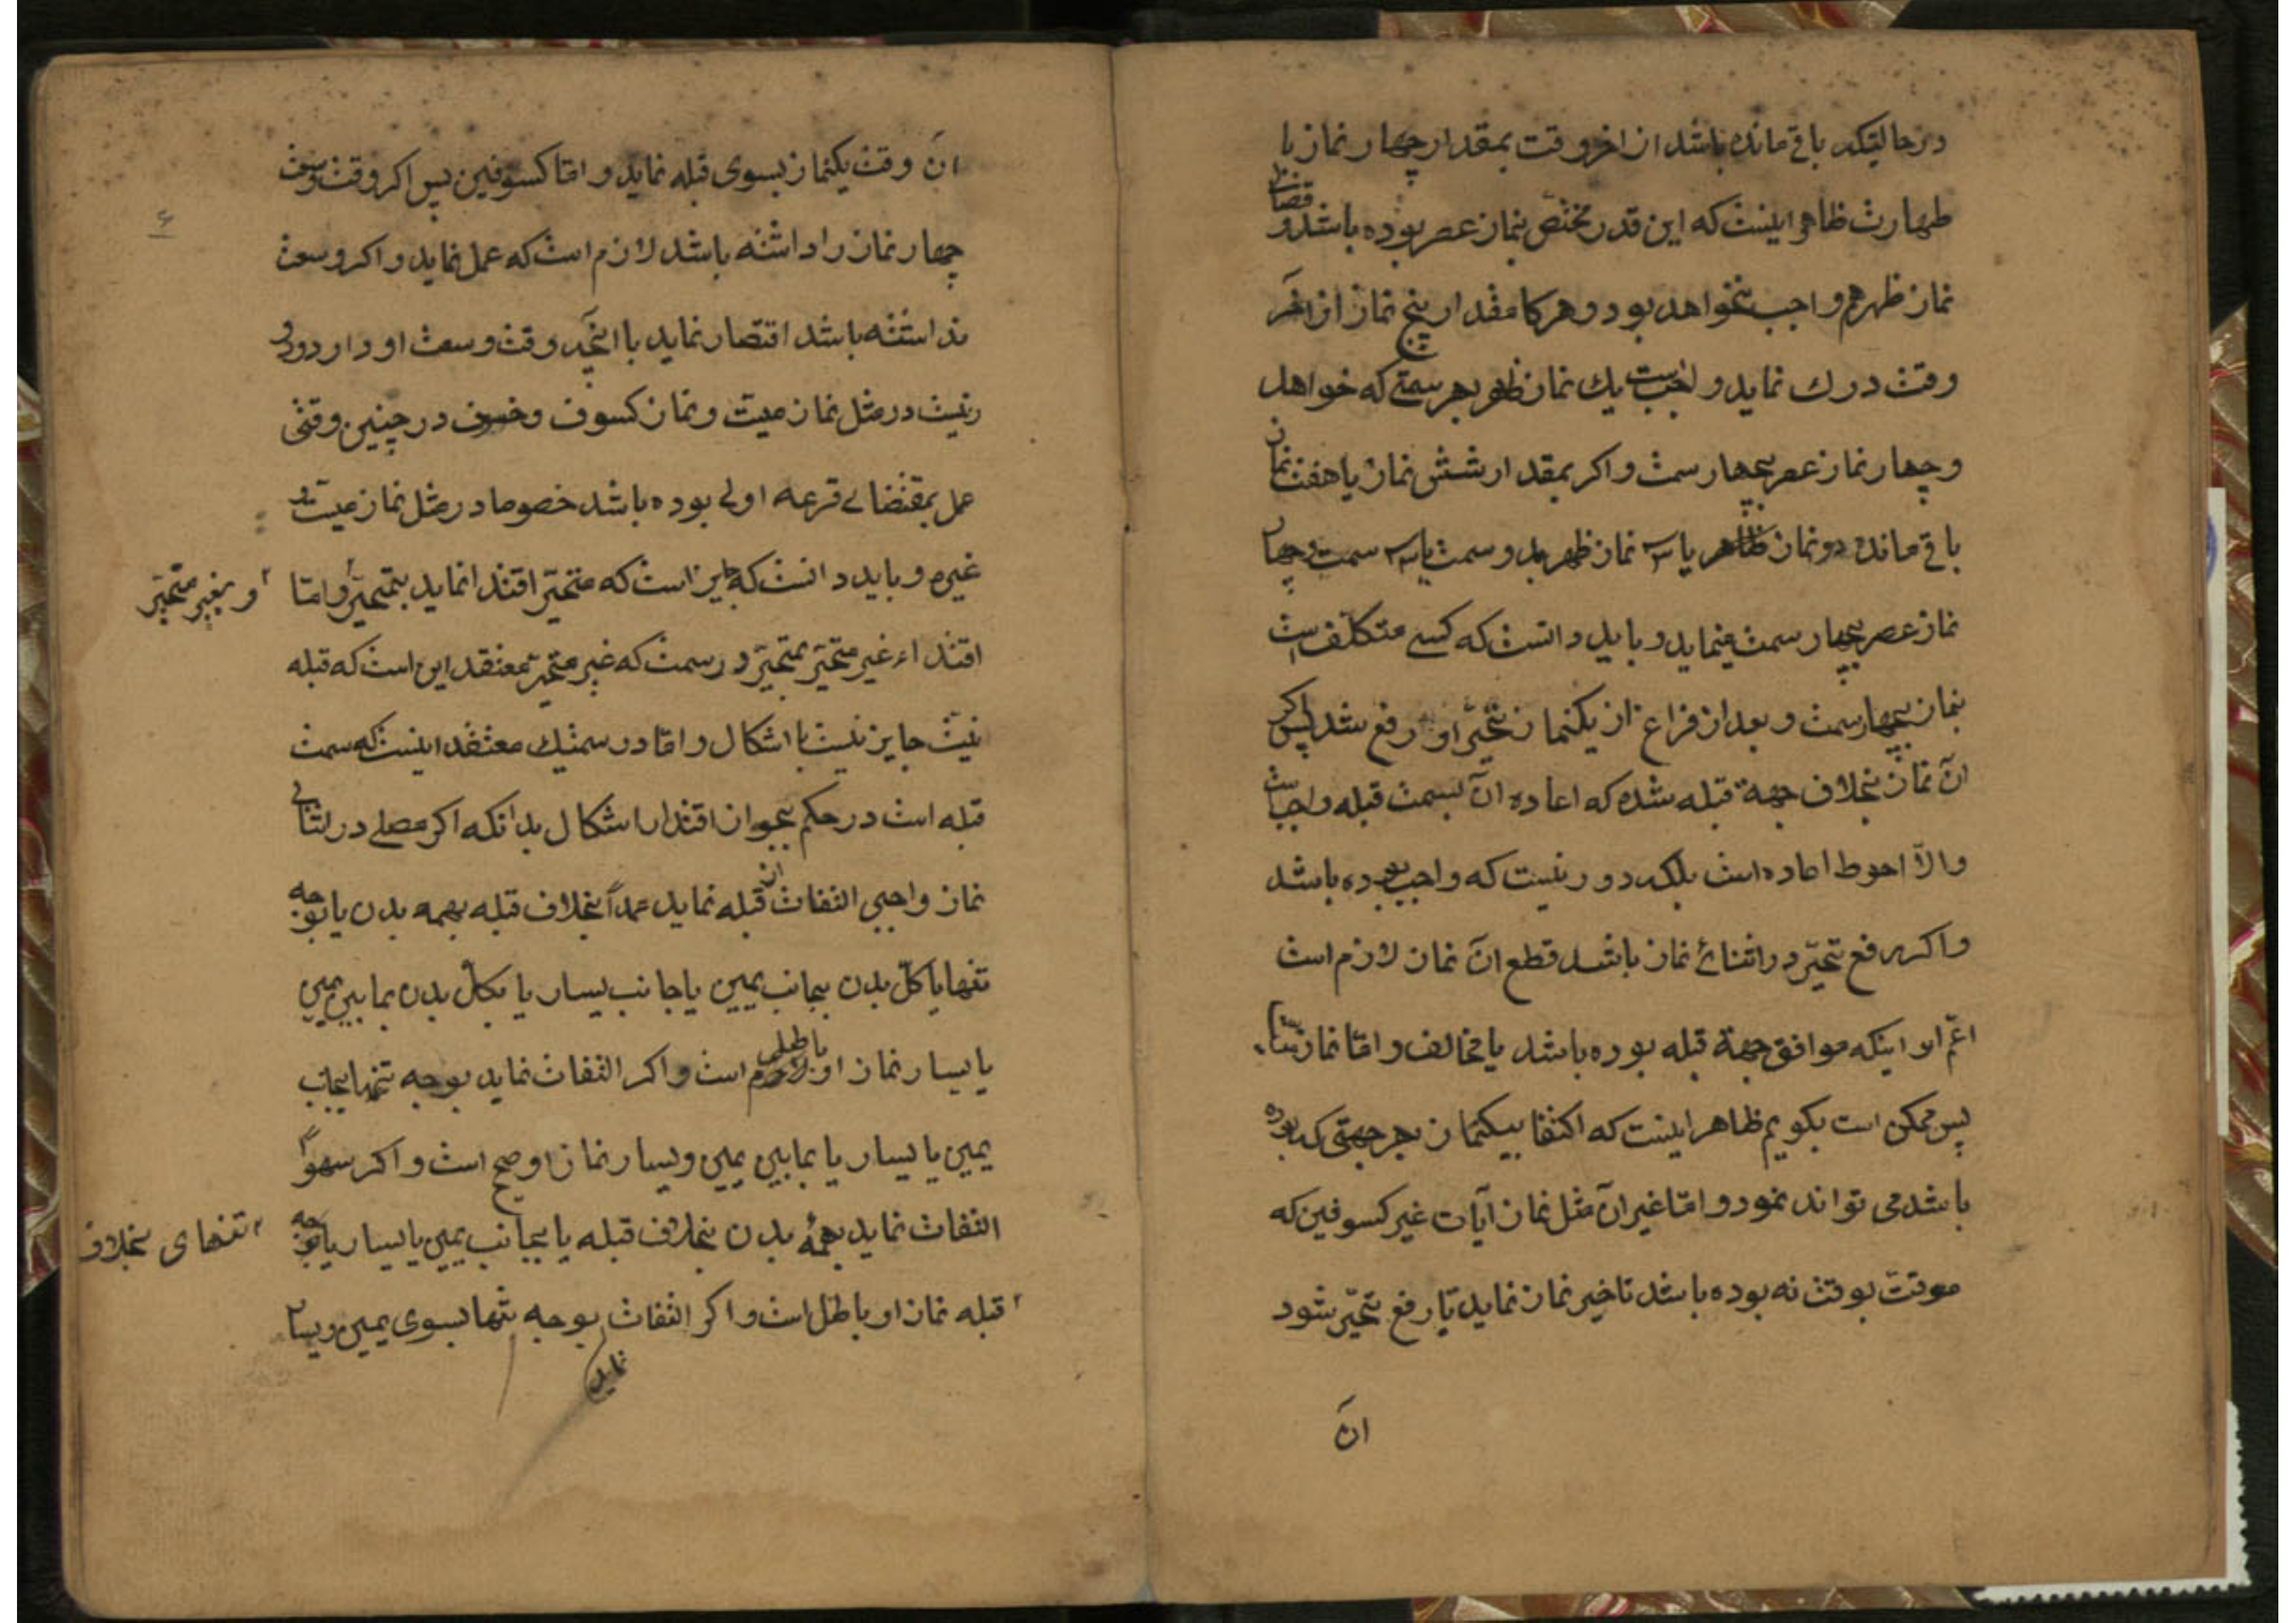 درحالتیکه باقی مانده باشد از اخر وقت بمقدار چهار نماز با
طهارت ظاهر اینست که این قدر مختص بنماز عصر بوده باشد و قضای
نماز ظهر هم واجب نخواهد بود و هرکاه مقدار پنج نماز از آخر
وقت درک نماید واجبست یك نماز ظهر بهر سمتی که خواهد
و چهار نماز عصر بچهار سمت و اکر بمقدار شش نماز یا هفت نماز
باقی مانده دو نماز ظاهر یا سه نماز ظهر بدو سمت یا سه سمت و چهار
نماز عصر بچهار سمت مینماید و باید دانست که کسی متکلّف است
بنماز بچهار سمت و بعد از فراغ از یکنماز تحیّر او رفع شد پس اکر
آن نماز بخلاف جهة قبله شده که اعاده آن بسمت قبله واجبست
والّا احوط اعاده است بلکه دور نیست که واجب بوده باشد
و اکر رفع تحیّر در اثنائ نماز باشد قطع آن نماز لازم است
اعمّ از اینکه موافق جهة قبله بوده باشد یا مخالف و امّا نماز
پس ممکن است بکویم ظاهر اینست که اکتفا بیکنماز بهر جهتی که بوده
باشد می تواند نمود و امّا غیر آن مثل نماز آیات غیر کسوفین که
موقت بوقت نه بوده باشد تاخیر نماز نماید تا رفع تحیّر شود
آن
۶
آن وقت یکنماز بسوی قبله نماید و امّا کسوفین پس اکر وقت وسعت
چهار نماز را داشته باشد لازم است که عمل نماید و اکر وسعت
نداشته باشد اقتصار نماید با آنچه وقت وسعت او دارد و دور
نیست در مثل نماز میت و نماز کسوف و خسوف در چنین وقتی
عمل بمقتضای قرعه اولی بوده باشد خصوصا در مثل نماز میّت و
غیره و باید دانست که جایز است که متحیّر اقتدا نماید بمتحیّر و امّا
و بغیر متحیّر
اقتداء غیر متحیّر بمتحیّر در سمت که غیر متحیّر معتقد این است که قبله
نیست جایز نیست با اشکال و امّا در سمتیك معتقد اینست که سمت
قبله است در حکم بجواز اقتدا اشکال بدانکه اکر مصلی در اثنای
نماز واجبی التفات از قبله نماید عمداً بخلاف قبله بهمه بدن یا بوجه
تنها یا کلّ بدن بجانب یمین یا جانب یسار یا بکلّ بدن بما بین یمین
یا یسار نماز او باطل است و اکر التفات نماید بوجه تنها بجانب
یمین یا یسار یا بما بین یمین و یسار نماز او صحیح است و اکر سهواً
التفات نماید بهمهٔ بدن بخلاف قبله یا بجانب یمین یا یسار یا بوجه
تنهای بخلاف
قبله نماز او باطل است و اکر التفات بوجه تنها بسوی یمین و یسار
نماید